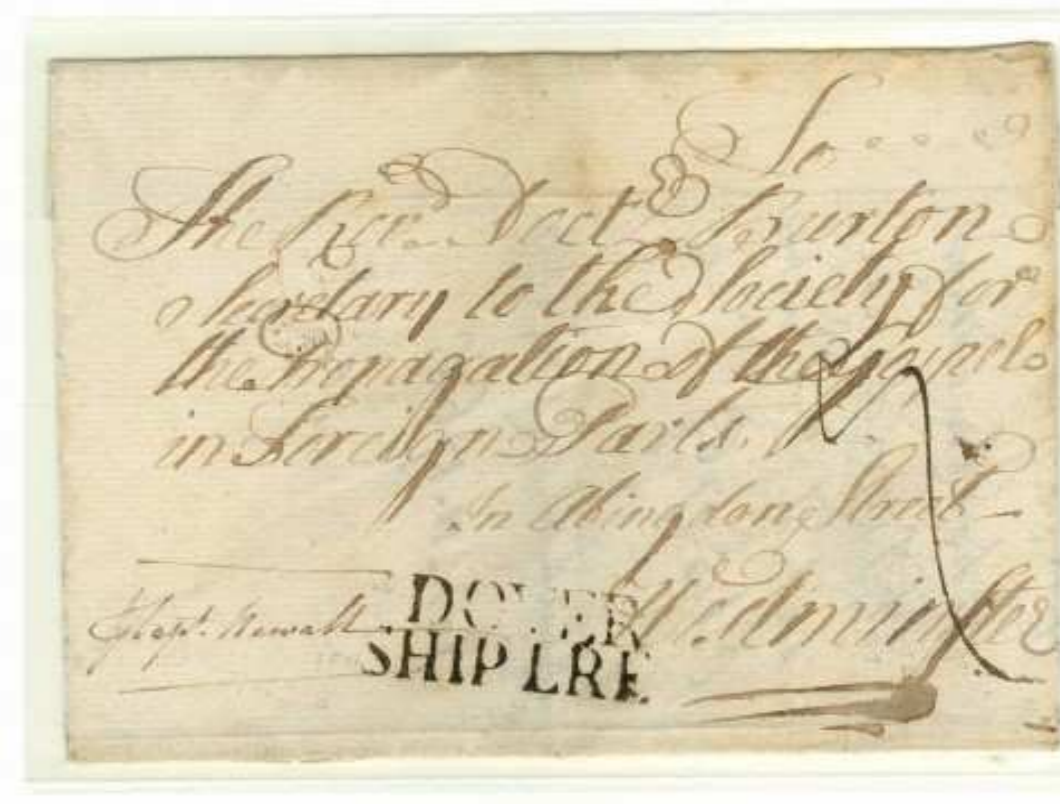 To
The Revd. Doctr. Burton
Secretary to the Society for
the Propagation of the Gospel
in Foreign Parts.
In Abingdon Street
Westminster
DOVER
SHIP LRE